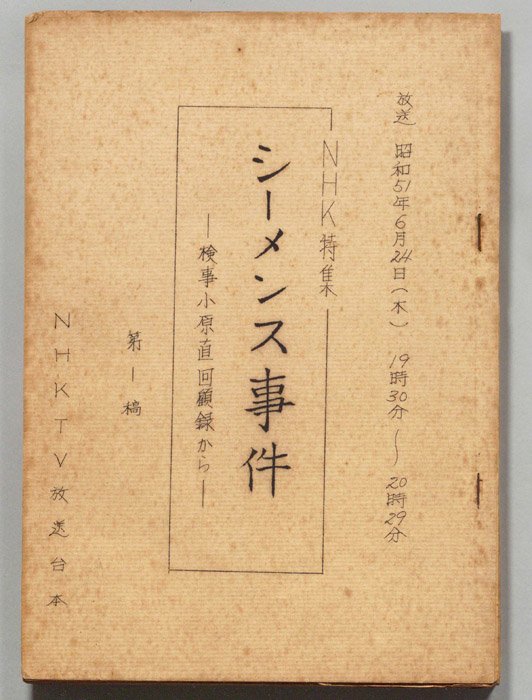 放送 昭和51年6月24日(木) 19時30分~20時29分
NHK特集
シーメンス事件
―検事小原直回顧録から―
第一稿
NHKTV放送台本